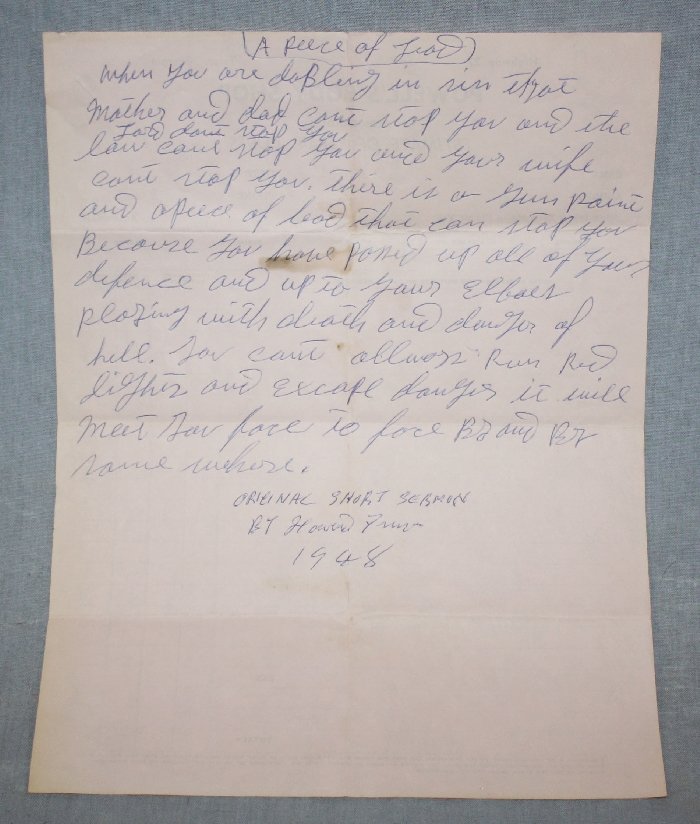 (A Peece of Lead)
When you are dabling in sin that
Mother and dad cant stop you and the
Lord dont stop you
law cant stop you and your wife
cant stop you. there is a gun paint
and apeece of lead that can stop you
Because you have passed up all of your
defence and up to your Elboes
plazing with death and danger of
hell. You cant allways Run Red
lights and excape danger it will
meet you face to face By and By
some where.
ORIGINAL SHORT SERMON
BY Howard
1948